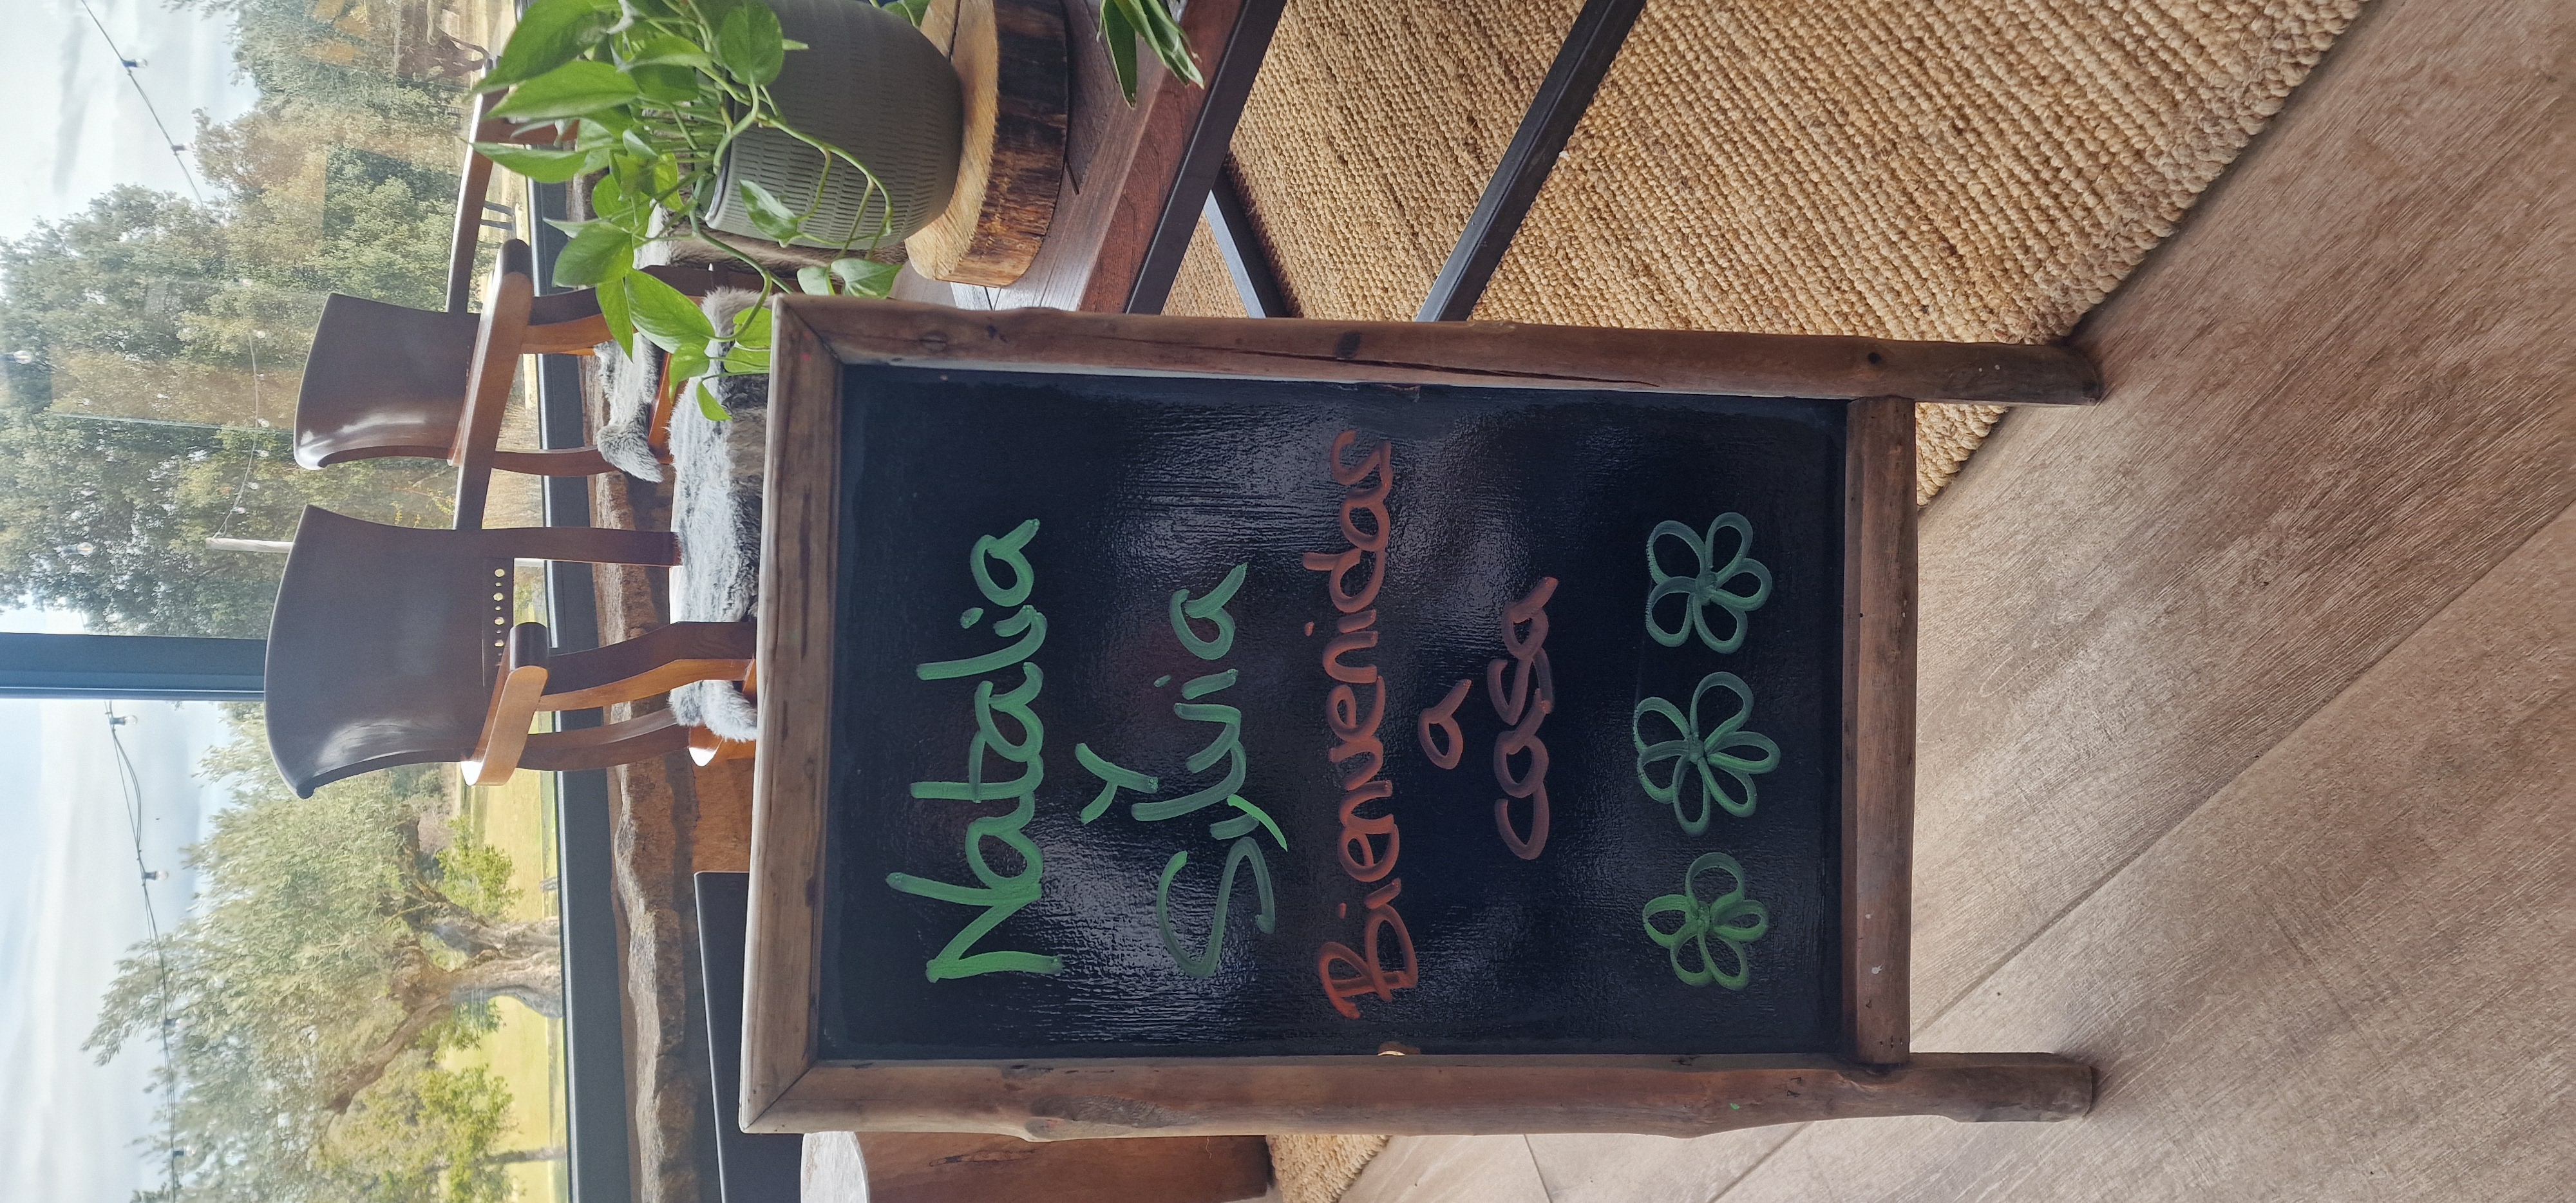 Natalia
y
Sylvia
Bienvenidas
a
casa